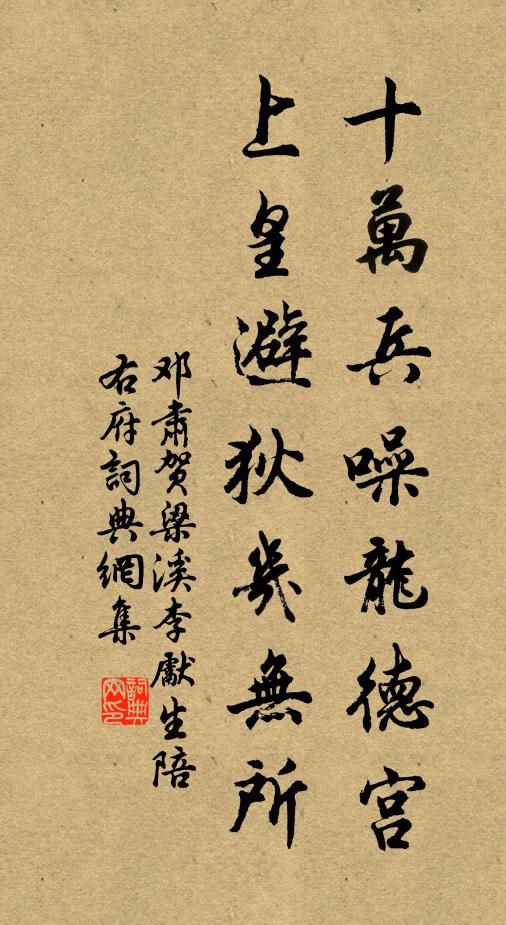 十萬兵噪龍德宮
上皇避狄幾無所
邓肅贺梁溪李獻生陪
右府詞典網集
詞典网印